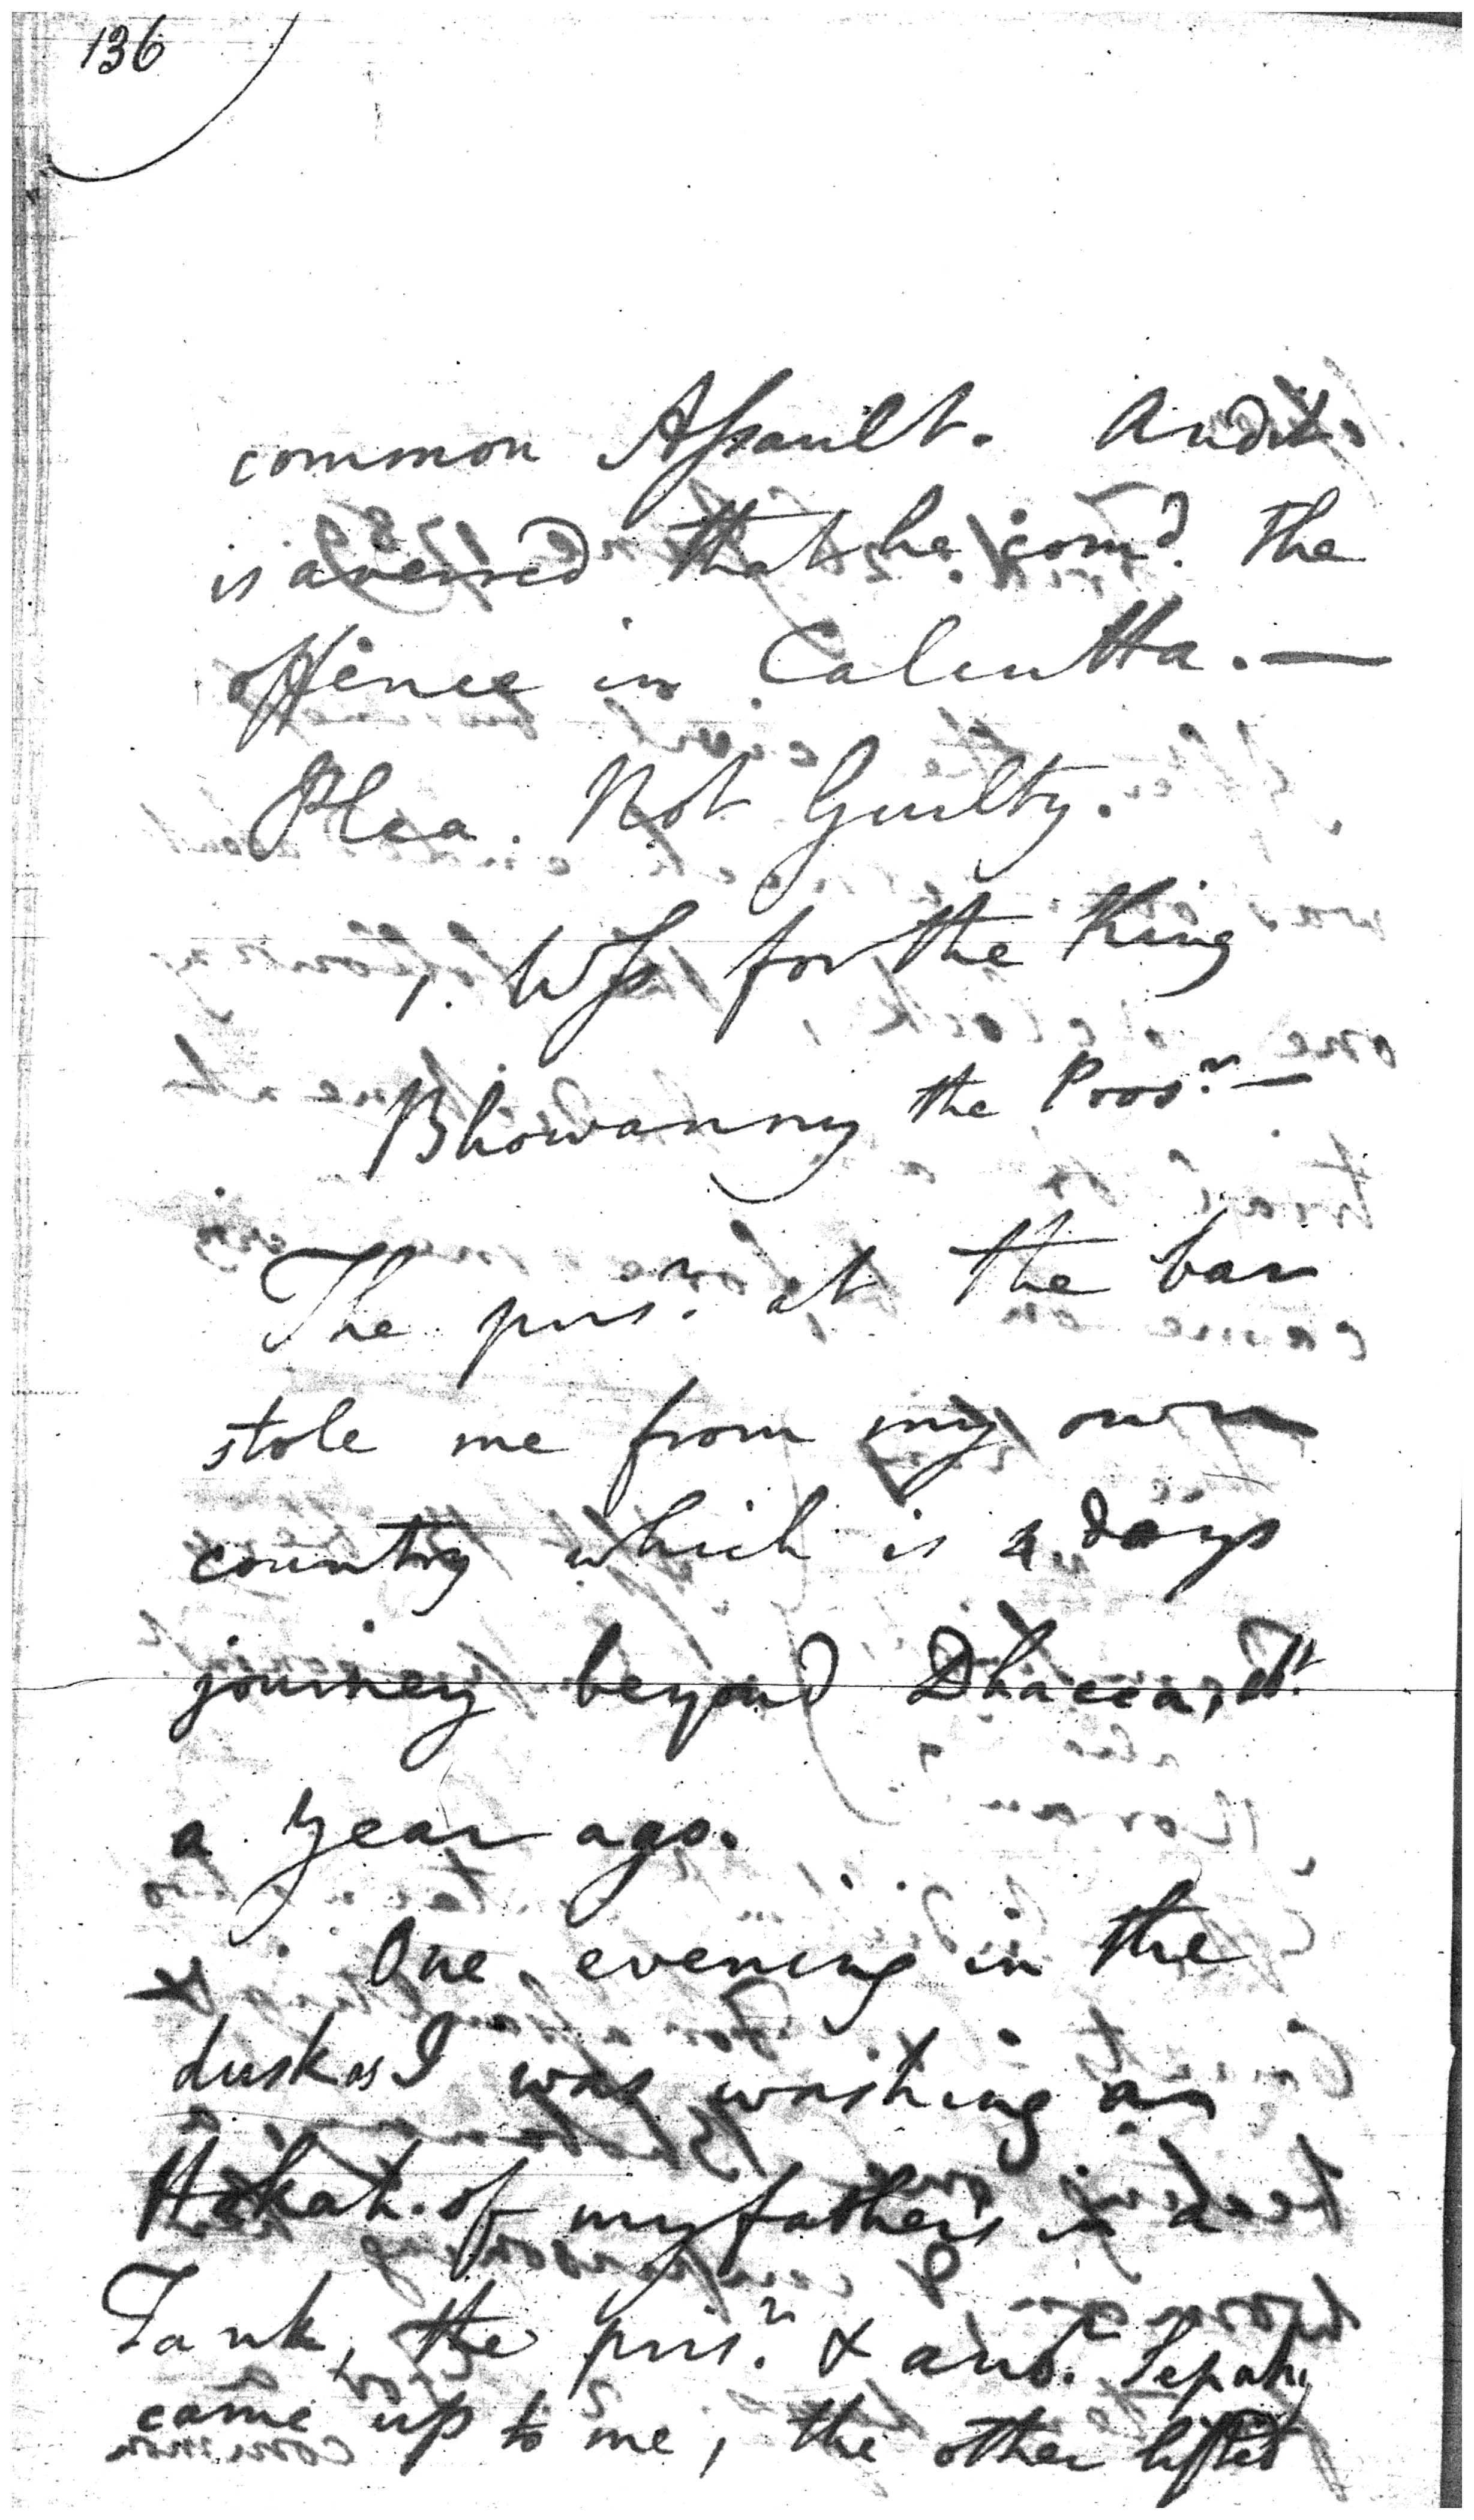 136
common Assault. And it
is averred that he com.d the
offence in Calcutta. —
Plea. Not Guilty.
1. Wss for the King
Bhowanny the Pros.r —
The pris.r at the bar
stole me from my own
country which is 4 days
journey beyond Dhacca, ab.t
a year ago.
One evening in the
dusk as I was washing an
Hokah of my father's in a
Tank, the pris.r & ano.r Sepahy
came up to me, the other lifted